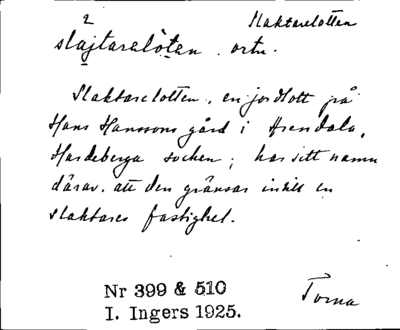 Slaktarelotten
2
slajtarelòten. ortn.
Slaktarelotten, en jordlott på
Hans Hanssons gård i Arendala,
Hardeberga socken; har sitt namn
därav, att den gränsar intill en
slaktares fastighet.
Nr 399 & 510
I. Ingers 1925.
Torna